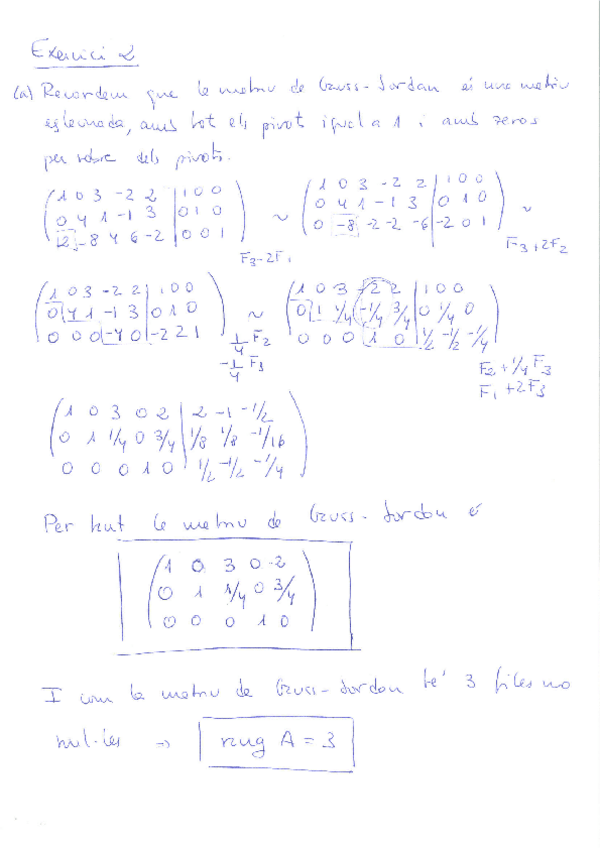 Exercici 2
(a) Recordem que la matriu de Gauss-Jordan és una matriu
esglaonada, amb tot els pivot igual a 1 i amb zeros
per sobre dels pivots.
( 1 0 3 -2 2 | 1 0 0 ) ~ ( 1 0 3 -2 2 | 1 0 0 ) ~
( 0 4 1 -1 3 | 0 1 0 ) ( 0 4 1 -1 3 | 0 1 0 )
( 2 -8 4 6 -2 | 0 0 1 ) ( 0 -8 -2 -2 -6 | -2 0 1 )
F₃-2F₁ F₃+2F₂
( 1 0 3 -2 2 | 1 0 0 ) ~ ( 1 0 3 -2 2 | 1 0 0 )
( 0 4 1 -1 3 | 0 1 0 ) ( 0 1 1/4 -1/4 3/4 | 0 1/4 0 )
( 0 0 0 -4 0 | -2 2 1 ) ( 0 0 0 1 0 | 1/2 -1/2 -1/4 )
1/4 F₂ F₂+1/4 F₃
-1/4 F₃ F₁+2F₃
( 1 0 3 0 2 | 2 -1 -1/2 )
( 0 1 1/4 0 3/4 | 1/8 1/8 -1/16 )
( 0 0 0 1 0 | 1/2 -1/2 -1/4 )
Per tant la matriu de Gauss-Jordan é
( 1 0 3 0 2 )
( 0 1 1/4 0 3/4 )
( 0 0 0 1 0 )
I com la matriu de Gauss-Jordan té 3 files no
nul·les => rang A = 3